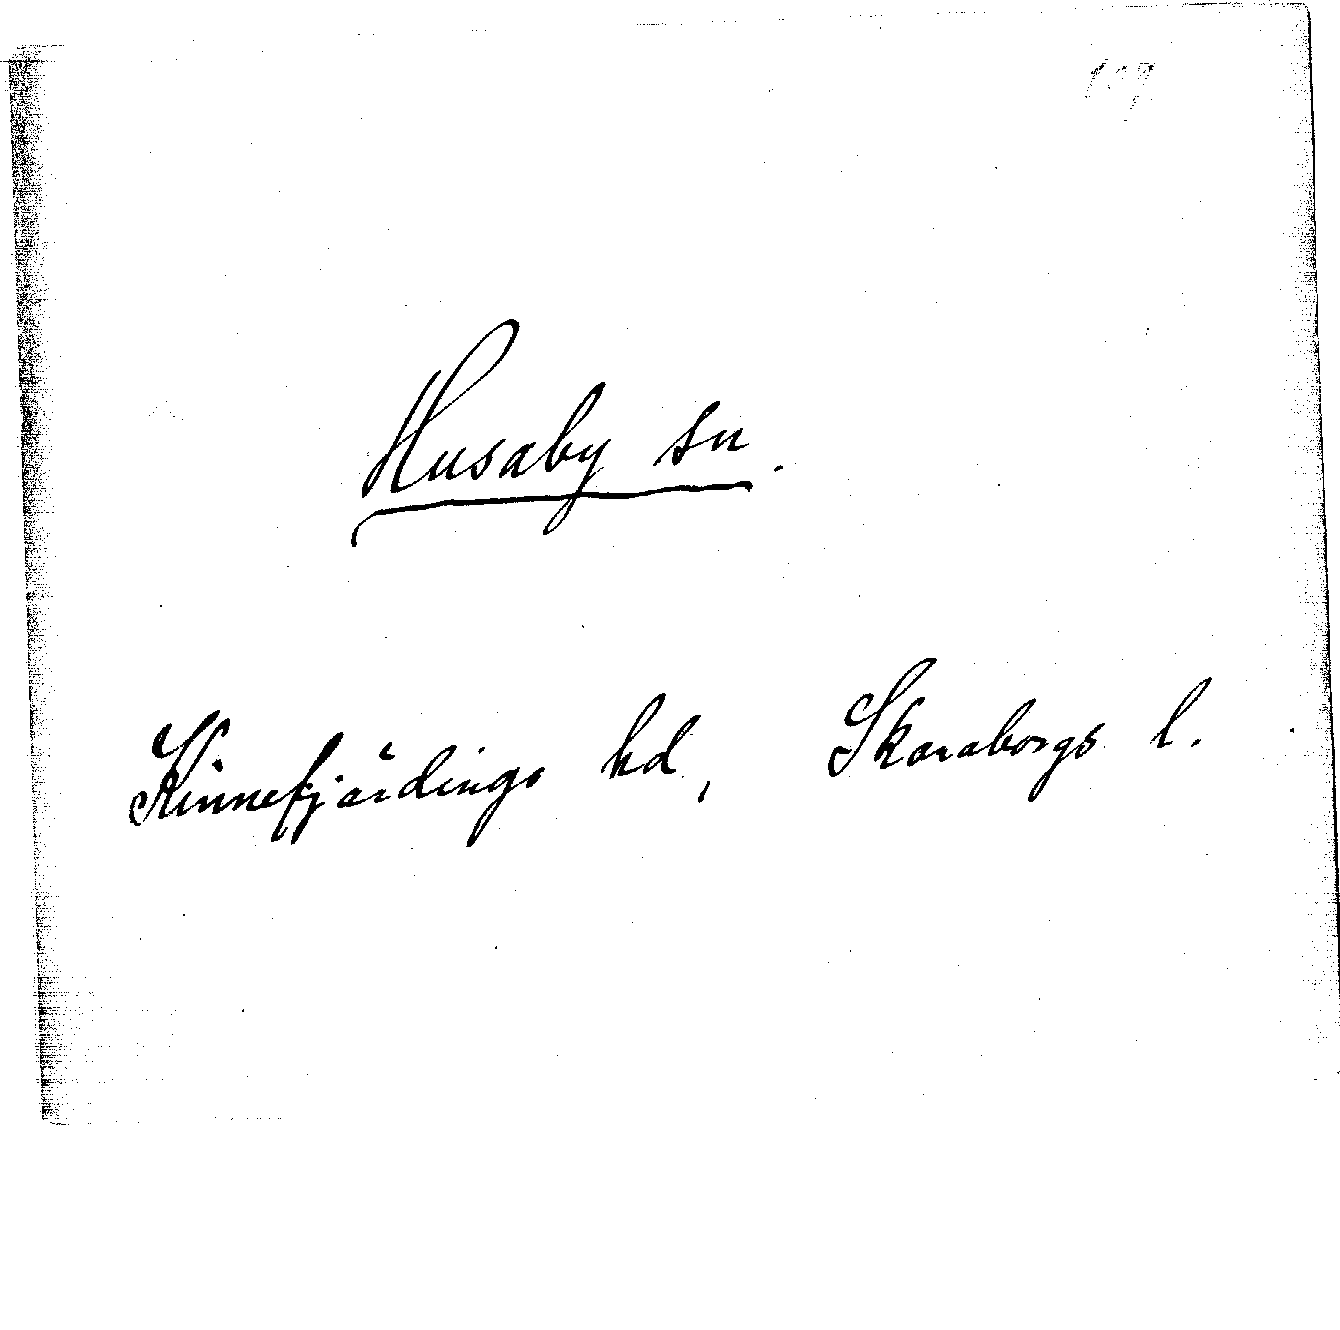 107
Husaby sn.
Kinnefjärdings hd, Skaraborgs l.